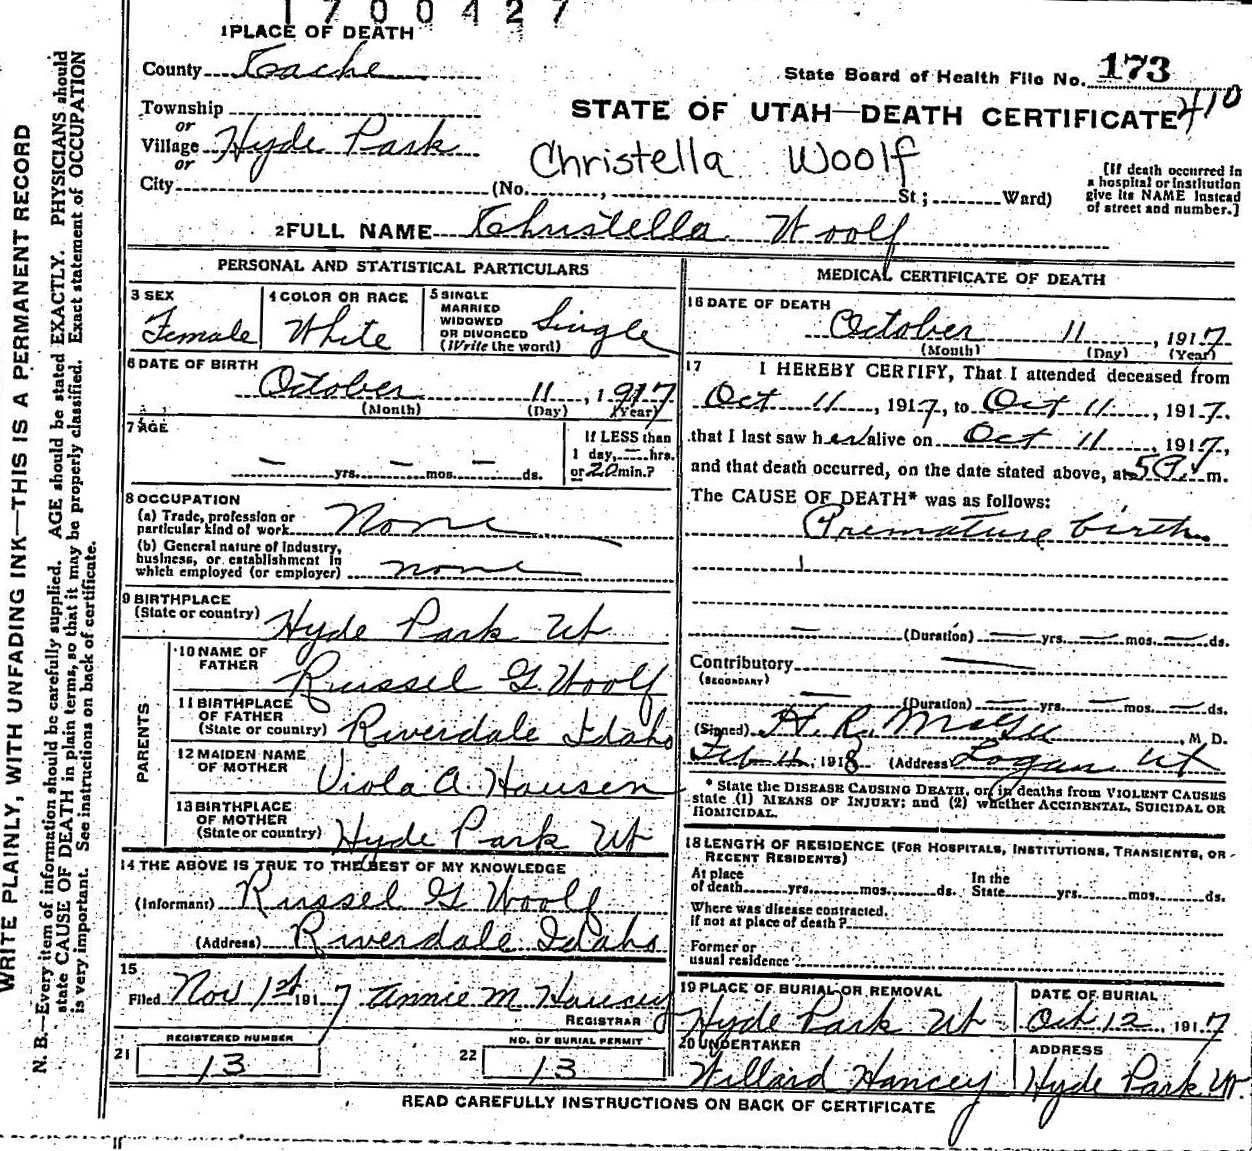 1700427
1 PLACE OF DEATH
County Cache
State Board of Health File No. 173
410
Township
or
STATE OF UTAH—DEATH CERTIFICATE
Village Hyde Park
or
Christella Woolf
City (No. , St; Ward)
[If death occurred in
a hospital or institution
give its NAME instead
of street and number.]
2 FULL NAME Christella Woolf
PERSONAL AND STATISTICAL PARTICULARS
3 SEX
Female
4 COLOR OR RACE
White
5 SINGLE
MARRIED
WIDOWED
OR DIVORCED
(Write the word)
Single
6 DATE OF BIRTH
October 11, 1917
(Month) (Day) (Year)
7 AGE
— yrs. — mos. — ds.
If LESS than
1 day, — hrs.
or 20 min.?
8 OCCUPATION
(a) Trade, profession or
particular kind of work None
(b) General nature of industry,
business, or establishment in
which employed (or employer) none
9 BIRTHPLACE
(State or country) Hyde Park Ut
PARENTS
10 NAME OF
FATHER
Russel G. Woolf
11 BIRTHPLACE
OF FATHER
(State or country) Riverdale Idaho
12 MAIDEN NAME
OF MOTHER
Viola A. Hansen
13 BIRTHPLACE
OF MOTHER
(State or country) Hyde Park Ut
14 THE ABOVE IS TRUE TO THE BEST OF MY KNOWLEDGE
(Informant) Russel G Woolf
(Address) Riverdale Idaho
15
Filed Nov 1st 1917 Annie M Hancey
REGISTRAR
REGISTERED NUMBER
21 13
NO. OF BURIAL PERMIT
22 13
MEDICAL CERTIFICATE OF DEATH
16 DATE OF DEATH
October 11, 1917
(Month) (Day) (Year)
17 I HEREBY CERTIFY, That I attended deceased from
Oct 11, 1917, to Oct 11, 1917.
that I last saw her alive on Oct 11, 1917,
and that death occurred, on the date stated above, at 5 m.
The CAUSE OF DEATH* was as follows:
Premature birth
— (Duration) — yrs. — mos. — ds.
Contributory —
(SECONDARY)
— (Duration) — yrs. — mos. — ds.
(Signed) H. R. McGee, M. D.
Feb 11, 1918 (Address) Logan Ut
* State the DISEASE CAUSING DEATH, or, in deaths from VIOLENT CAUSES
state (1) MEANS OF INJURY; and (2) whether ACCIDENTAL, SUICIDAL OR
HOMICIDAL.
18 LENGTH OF RESIDENCE (FOR HOSPITALS, INSTITUTIONS, TRANSIENTS, OR
RECENT RESIDENTS)
At place
of death yrs. mos. ds.
In the
State yrs. mos. ds.
Where was disease contracted.
if not at place of death?
Former or
usual residence
19 PLACE OF BURIAL OR REMOVAL
Hyde Park Ut
DATE OF BURIAL
Oct 12, 1917
20 UNDERTAKER
Willard Hancey
ADDRESS
Hyde Park Ut.
READ CAREFULLY INSTRUCTIONS ON BACK OF CERTIFICATE
WRITE PLAINLY, WITH UNFADING INK—THIS IS A PERMANENT RECORD
N. B.—Every item of information should be carefully supplied. AGE should be stated EXACTLY. PHYSICIANS should
state CAUSE OF DEATH in plain terms, so that it may be properly classified. Exact statement of OCCUPATION
is very important. See instructions on back of certificate.